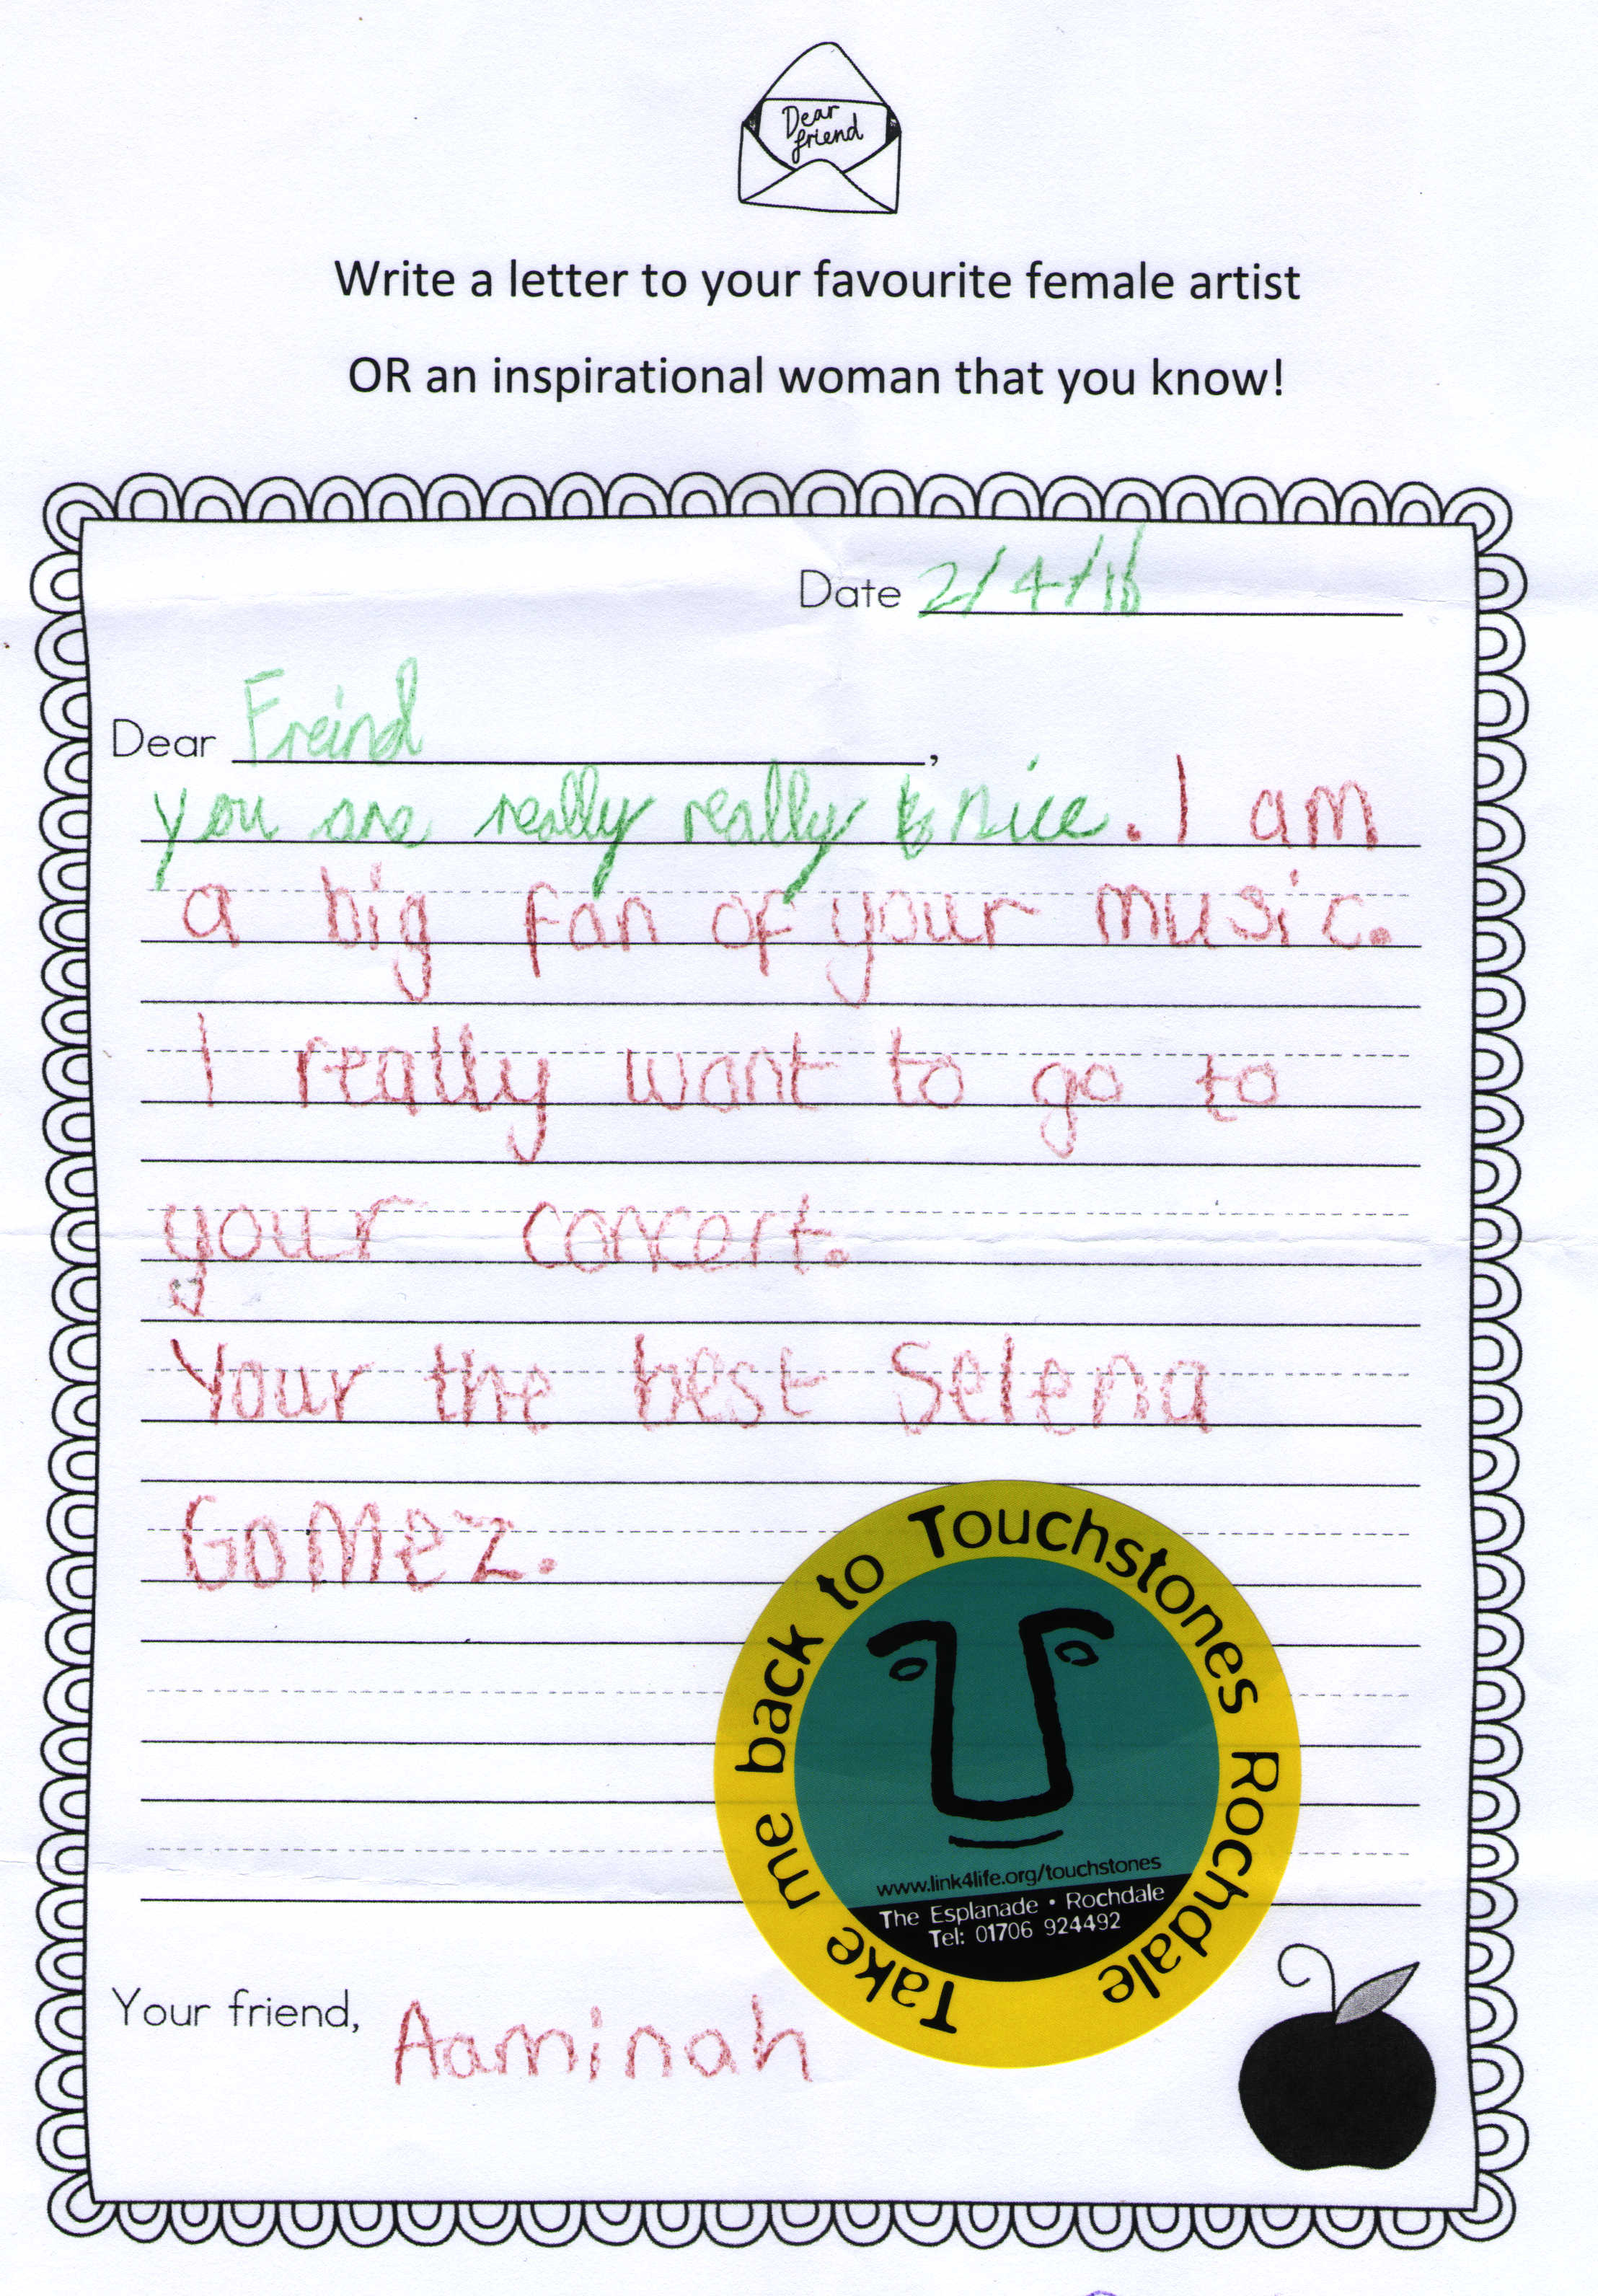 Dear friend
Write a letter to your favourite female artist
OR an inspirational woman that you know!
Date 2/4/16
Dear Freind,
you are really really nice. I am
a big fan of your music.
I really want to go to
your concert.
Your the best Selena
GoMez.
Take me back to Touchstones Rochdale
www.link4life.org/touchstones
The Esplanade • Rochdale
Tel: 01706 924492
Your friend, Aaminah